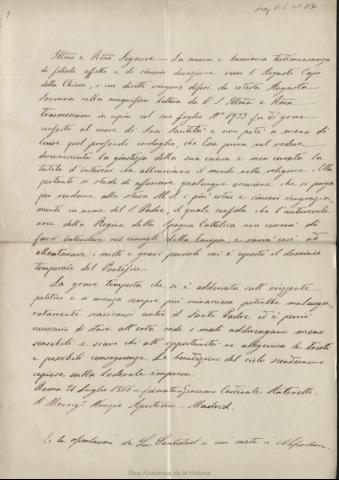 Illmo e Rmo Signore — La nuova e luminosa testimonianza
di filiale affetto e di sincera devozione verso l'Augusto Capo
della Chiesa, i cui diritti vengono difesi da cotesta Augusta
Sovrana nella magnifica lettera da V. S. Illma e Rma
trasmessami in copia col suo foglio N° 1933 fu di gran
conforto al cuore di Sua Santità e non poté a meno di
lenire quel profondo cordoglio, che Essa prova nel vedere
disconosciuta la giustizia della sua causa e men curata la
tutela d'interessi che abbracciano il mondo nella religione. Ella
pertanto si studi di afferrare qualunque occasione che si porga
per rendere alla stessa M. S. i più estesi e sinceri ringrazia-
menti in nome del S. Padre, il quale confida che l'autorevole
voce della Regina della Spagna Cattolica non cesserà di
farsi intendere nei consigli della Europa e varrà così ad
allontanare i molti e gravi pericoli cui è esposto il dominio
temporale del Pontefice.
La grave tempesta che si è addensata sull'orizzonte
politico e si avanza sempre più minacciosa potrebbe malaugu-
ratamente scaricarsi contro il Santo Padre ed è perciò
necessario di stare all'erta onde i mali addivengano meno
sensibili e siavi chi all'opportunità ne allegerisca le triste
e possibili conseguenze. Le benedizioni del cielo scenderanno
copiose sulla lodevole impresa.
Roma 21 Luglio 1866 — firmato — Giacomo Cardinale Antonelli.
A Monsigr Nunzio Apostolico — Madrid.
Es la contestacion de Su Santidad a mi carta a Napoleon.
Real Academia de la Historia